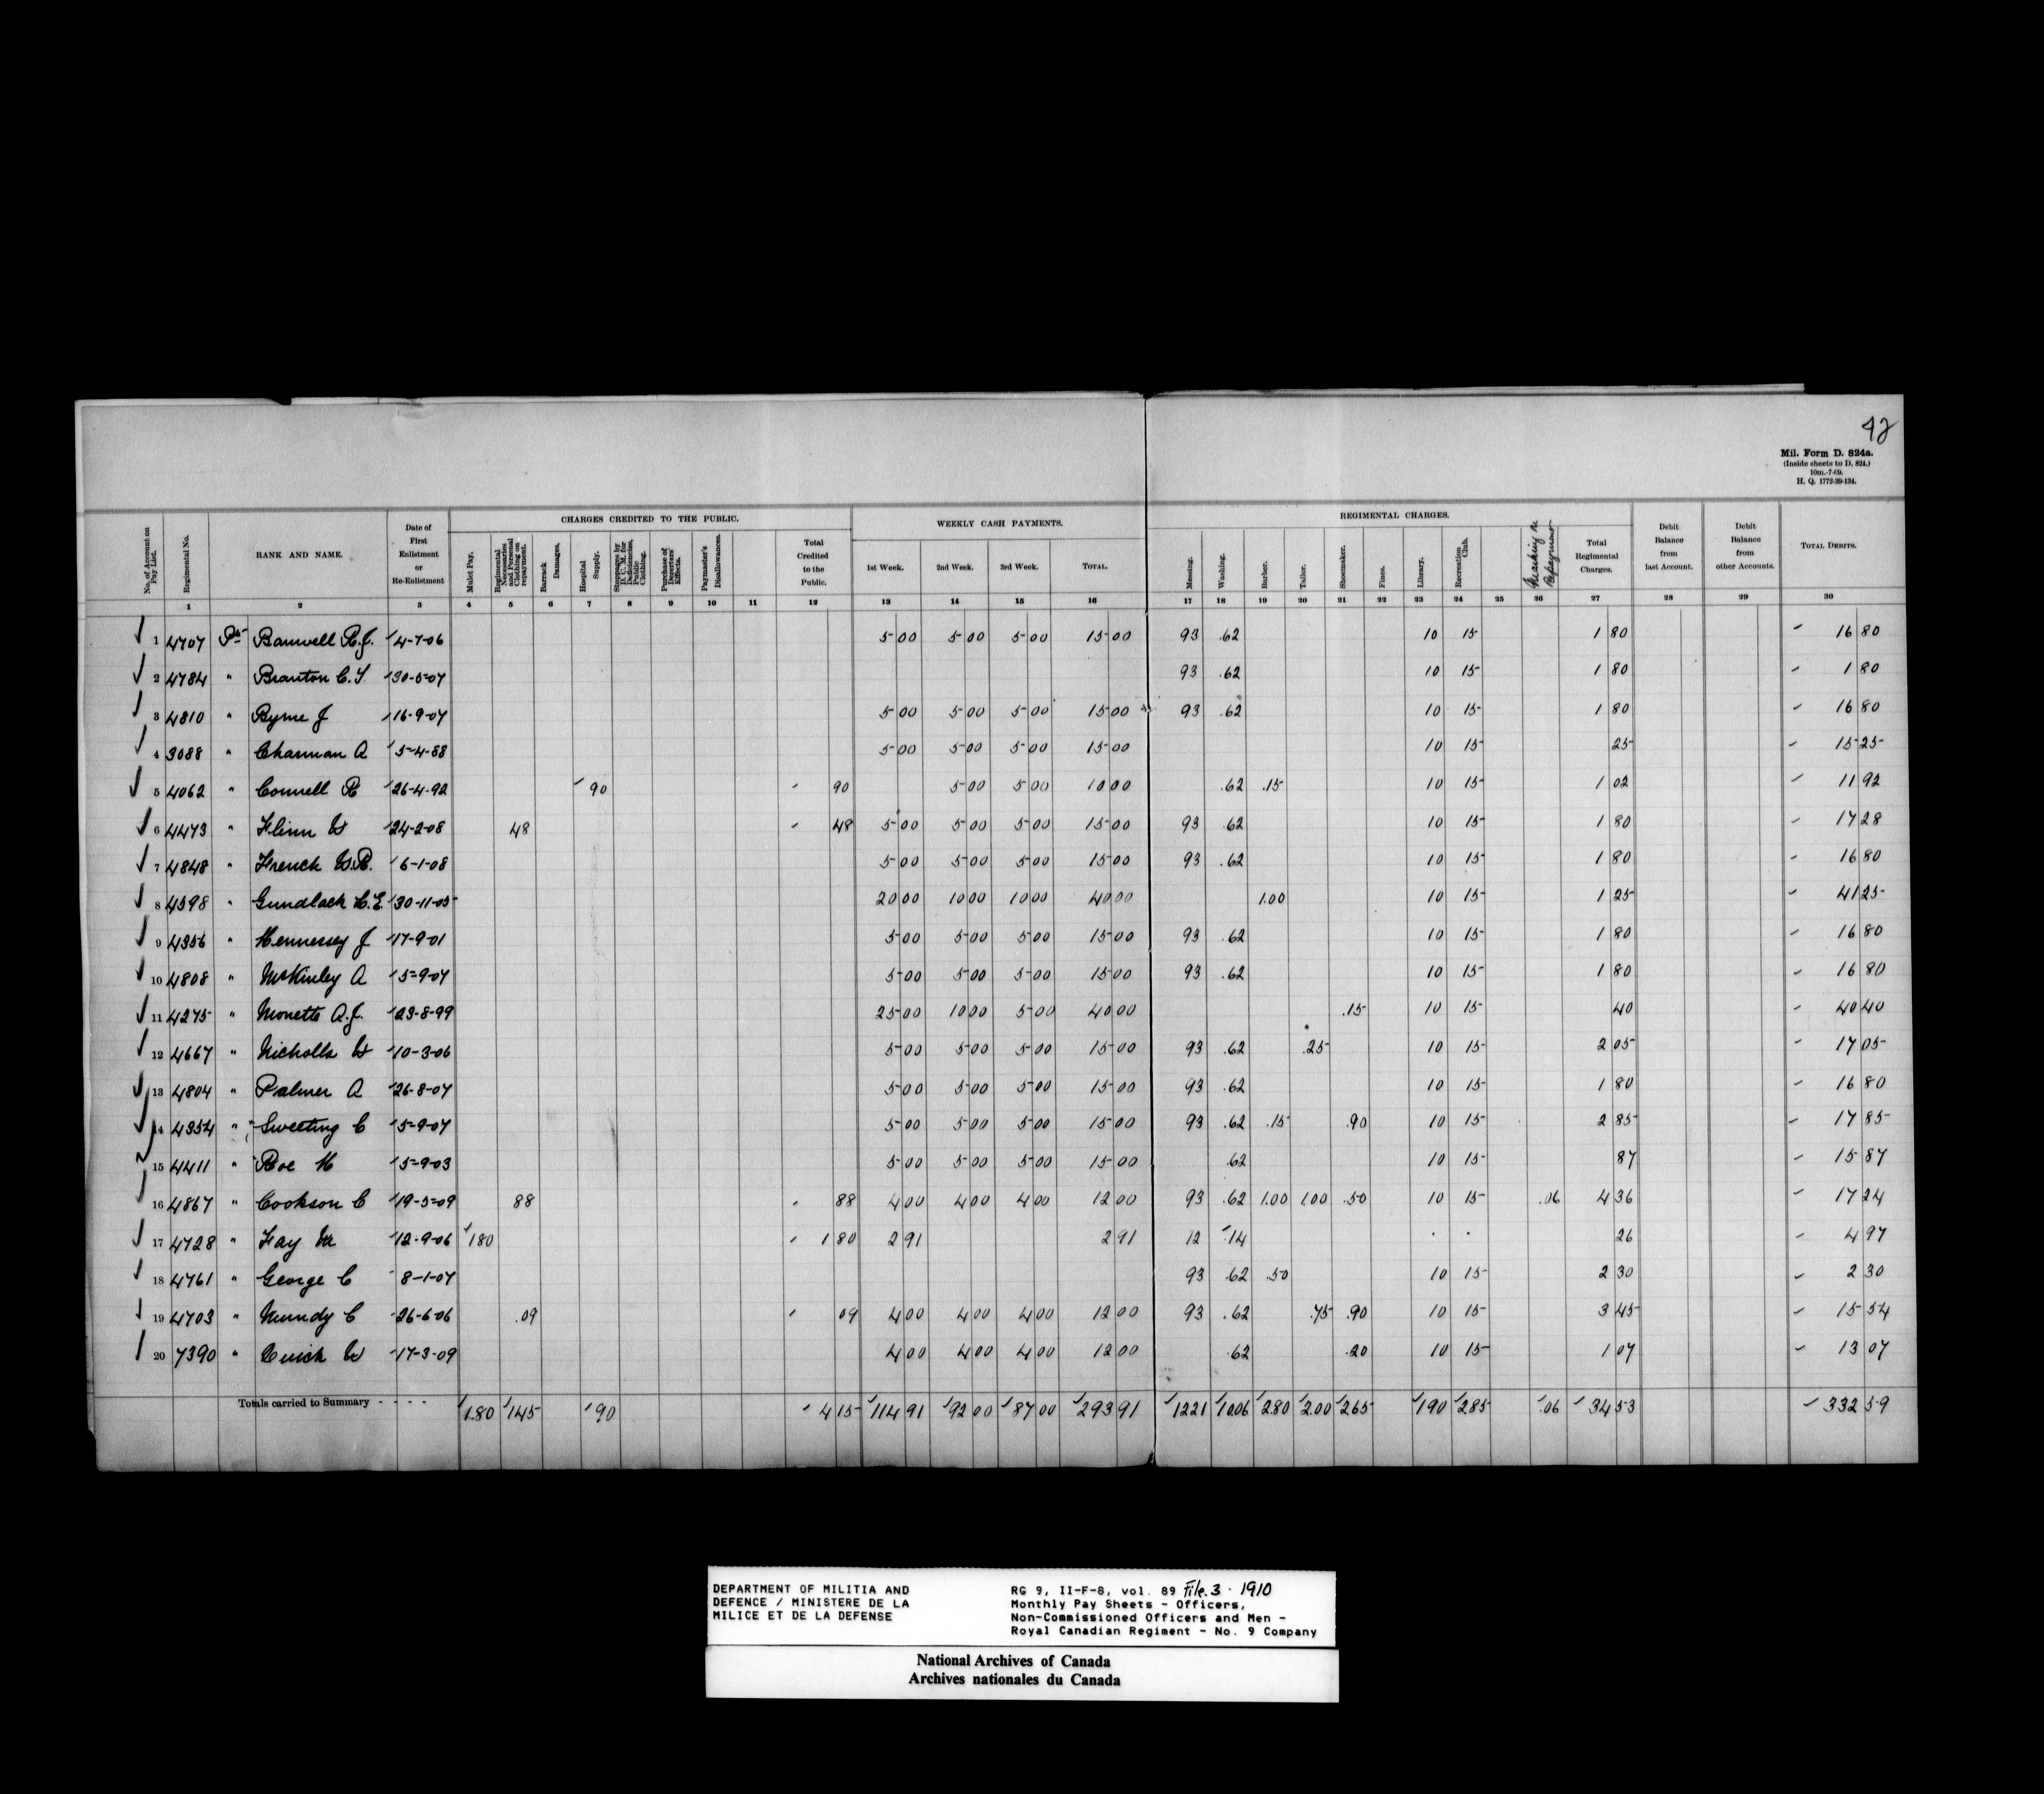 42
Mil. Form D. 824a.
(Inside sheets to D. 824.)
10m.-7-09.
H. Q. 1772-39-134.
CHARGES CREDITED TO THE PUBLIC. WEEKLY CASH PAYMENTS. REGIMENTAL CHARGES.
No. of Account on Pay List. Regimental No. RANK AND NAME. Date of First Enlistment or Re-Enlistment Mulct Pay. Regimental Necessaries and Personal Clothing on repayment. Barrack Damages. Hospital Supply. Stoppages by D. C. M. for Deficiencies, Public Clothing. Purchase of Deserters' Effects. Paymaster's Disallowances. Total Credited to the Public. 1st Week. 2nd Week. 3rd Week. TOTAL. Messing. Washing. Barber. Tailor. Shoemaker. Fines. Library. Recreation Club. Marking Repayment Total Regimental Charges. Debit Balance from last Account. Debit Balance from other Accounts. TOTAL DEBITS.
1 2 3 4 5 6 7 8 9 10 11 12 13 14 15 16 17 18 19 20 21 22 23 24 25 26 27 28 29 30
1 4707 Pte Banwell R.J. 4-7-06 5 00 5 00 5 00 15 00 93 .62 10 15 1 80 16 80
2 4784 " Branton C.T. 30-5-07 93 .62 10 15 1 80 1 80
3 4810 " Byrne J 16-9-07 5 00 5 00 5 00 15 00 93 .62 10 15 1 80 16 80
4 3088 " Charman A 5-4-88 5 00 5 00 5 00 15 00 10 15 25 15 25
5 4062 " Connell R 26-4-92 90 90 5 00 5 00 10 00 .62 .15 10 15 1 02 11 92
6 4473 " Flinn W 24-2-08 48 48 5 00 5 00 5 00 15 00 93 .62 10 15 1 80 17 28
7 4848 " French W.R. 6-1-08 5 00 5 00 5 00 15 00 93 .62 10 15 1 80 16 80
8 4598 " Gundlack C.E. 30-11-05 20 00 10 00 10 00 40 00 1.00 10 15 1 25 41 25
9 4356 " Hennessey J 17-9-01 5 00 5 00 5 00 15 00 93 .62 10 15 1 80 16 80
10 4808 " McKinley A 5-9-07 5 00 5 00 5 00 15 00 93 .62 10 15 1 80 16 80
11 4275 " Monette A.J. 23-8-99 25 00 10 00 5 00 40 00 .15 10 15 40 40 40
12 4667 " Nicholls W 10-3-06 5 00 5 00 5 00 15 00 93 .62 .25 10 15 2 05 17 05
13 4804 " Palmer A 26-8-07 5 00 5 00 5 00 15 00 93 .62 10 15 1 80 16 80
14 4354 " Sweeting C 5-9-07 5 00 5 00 5 00 15 00 93 .62 .15 .90 10 15 2 85 17 85
15 4411 " Roe H 5-9-03 5 00 5 00 5 00 15 00 .62 10 15 87 15 87
16 4867 " Cookson C 19-5-09 88 88 4 00 4 00 4 00 12 00 93 .62 1.00 1.00 .50 10 15 .06 4 36 17 24
17 4728 " Fay M 12-9-06 180 1 80 2 91 2 91 12 .14 26 4 97
18 4761 " George C 8-1-07 93 .62 .50 10 15 2 30 2 30
19 4703 " Mundy C 26-6-06 .09 09 4 00 4 00 4 00 12 00 93 .62 .75 .90 10 15 3 45 15 54
20 7390 " Quick W 17-3-09 4 00 4 00 4 00 12 00 .62 .20 10 15 1 07 13 07
Totals carried to Summary - - - - 1.80 145 90 4 15 114 91 92 00 87 00 293 91 1221 1006 280 2.00 265 190 285 .06 34 53 332 59
DEPARTMENT OF MILITIA AND
DEFENCE / MINISTERE DE LA
MILICE ET DE LA DEFENSE
RG 9, II-F-8, vol. 89 File.3 · 1910
Monthly Pay Sheets - Officers,
Non-Commissioned Officers and Men -
Royal Canadian Regiment - No. 9 Company
National Archives of Canada
Archives nationales du Canada